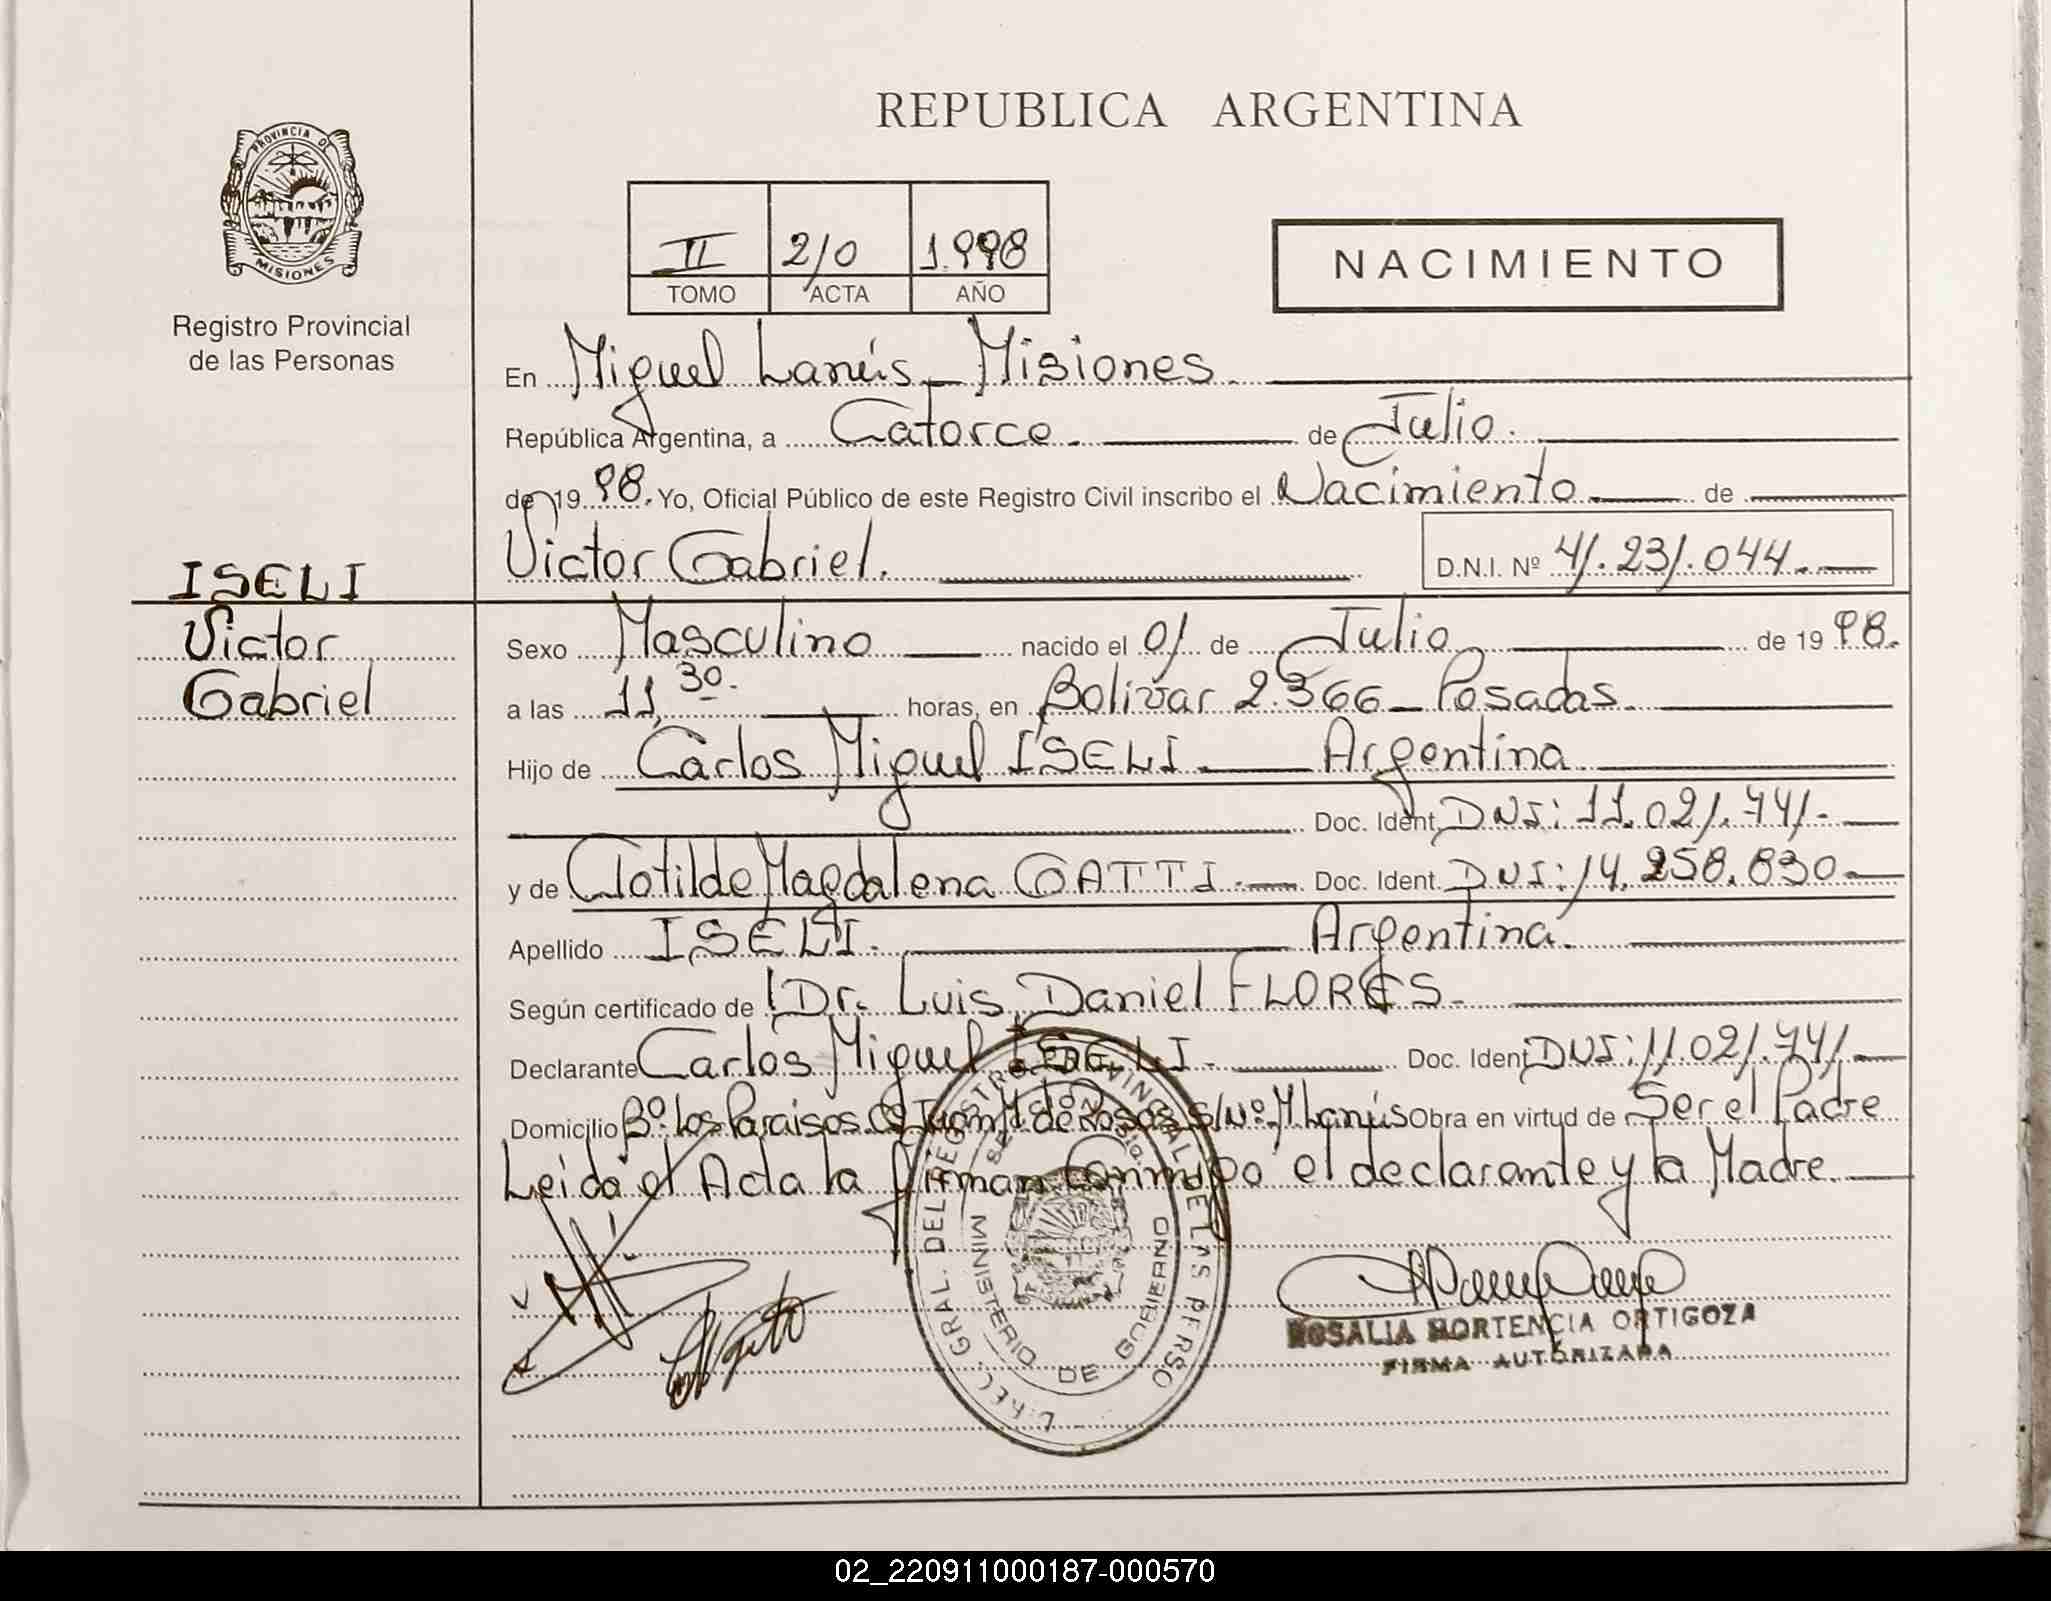 REPUBLICA ARGENTINA
PROVINCIA DE
MISIONES
Registro Provincial
de las Personas
II 210 1.998
TOMO ACTA AÑO
NACIMIENTO
En Miguel Lanús - Misiones
República Argentina, a Catorce. de Julio.
de 19 98. Yo, Oficial Público de este Registro Civil inscribo el Nacimiento de
Victor Gabriel.
D.N.I. Nº 41.231.044.
ISELI
Victor
Gabriel
Sexo Masculino nacido el 01 de Julio de 19 98.
a las 11,30. horas, en Bolivar 2.366 - Posadas.
Hijo de Carlos Miguel ISELI. Argentina
Doc. Ident. DNI: 11.021.741.
y de Clotilde Magdalena GATTI. Doc. Ident. DNI: 14.258.830
Apellido ISELI. Argentina.
Según certificado de Dr. Luis Daniel FLORES.
Declarante Carlos Miguel ISELI. Doc. Ident DNI: 11.021.741
Domicilio Bº Los Paraisos. Juan M. de Rosas s/Nº. M. Lanús Obra en virtud de Ser el Padre
Leída el Acta la firman Conmigo el declarante y la Madre.
DIREC. GRAL. DEL REGISTRO PROVINCIAL DE LAS PERSO
MINISTERIO DE GOBIERNO
ROSALIA HORTENCIA ORTIGOZA
FIRMA AUTORIZADA
02_220911000187-000570